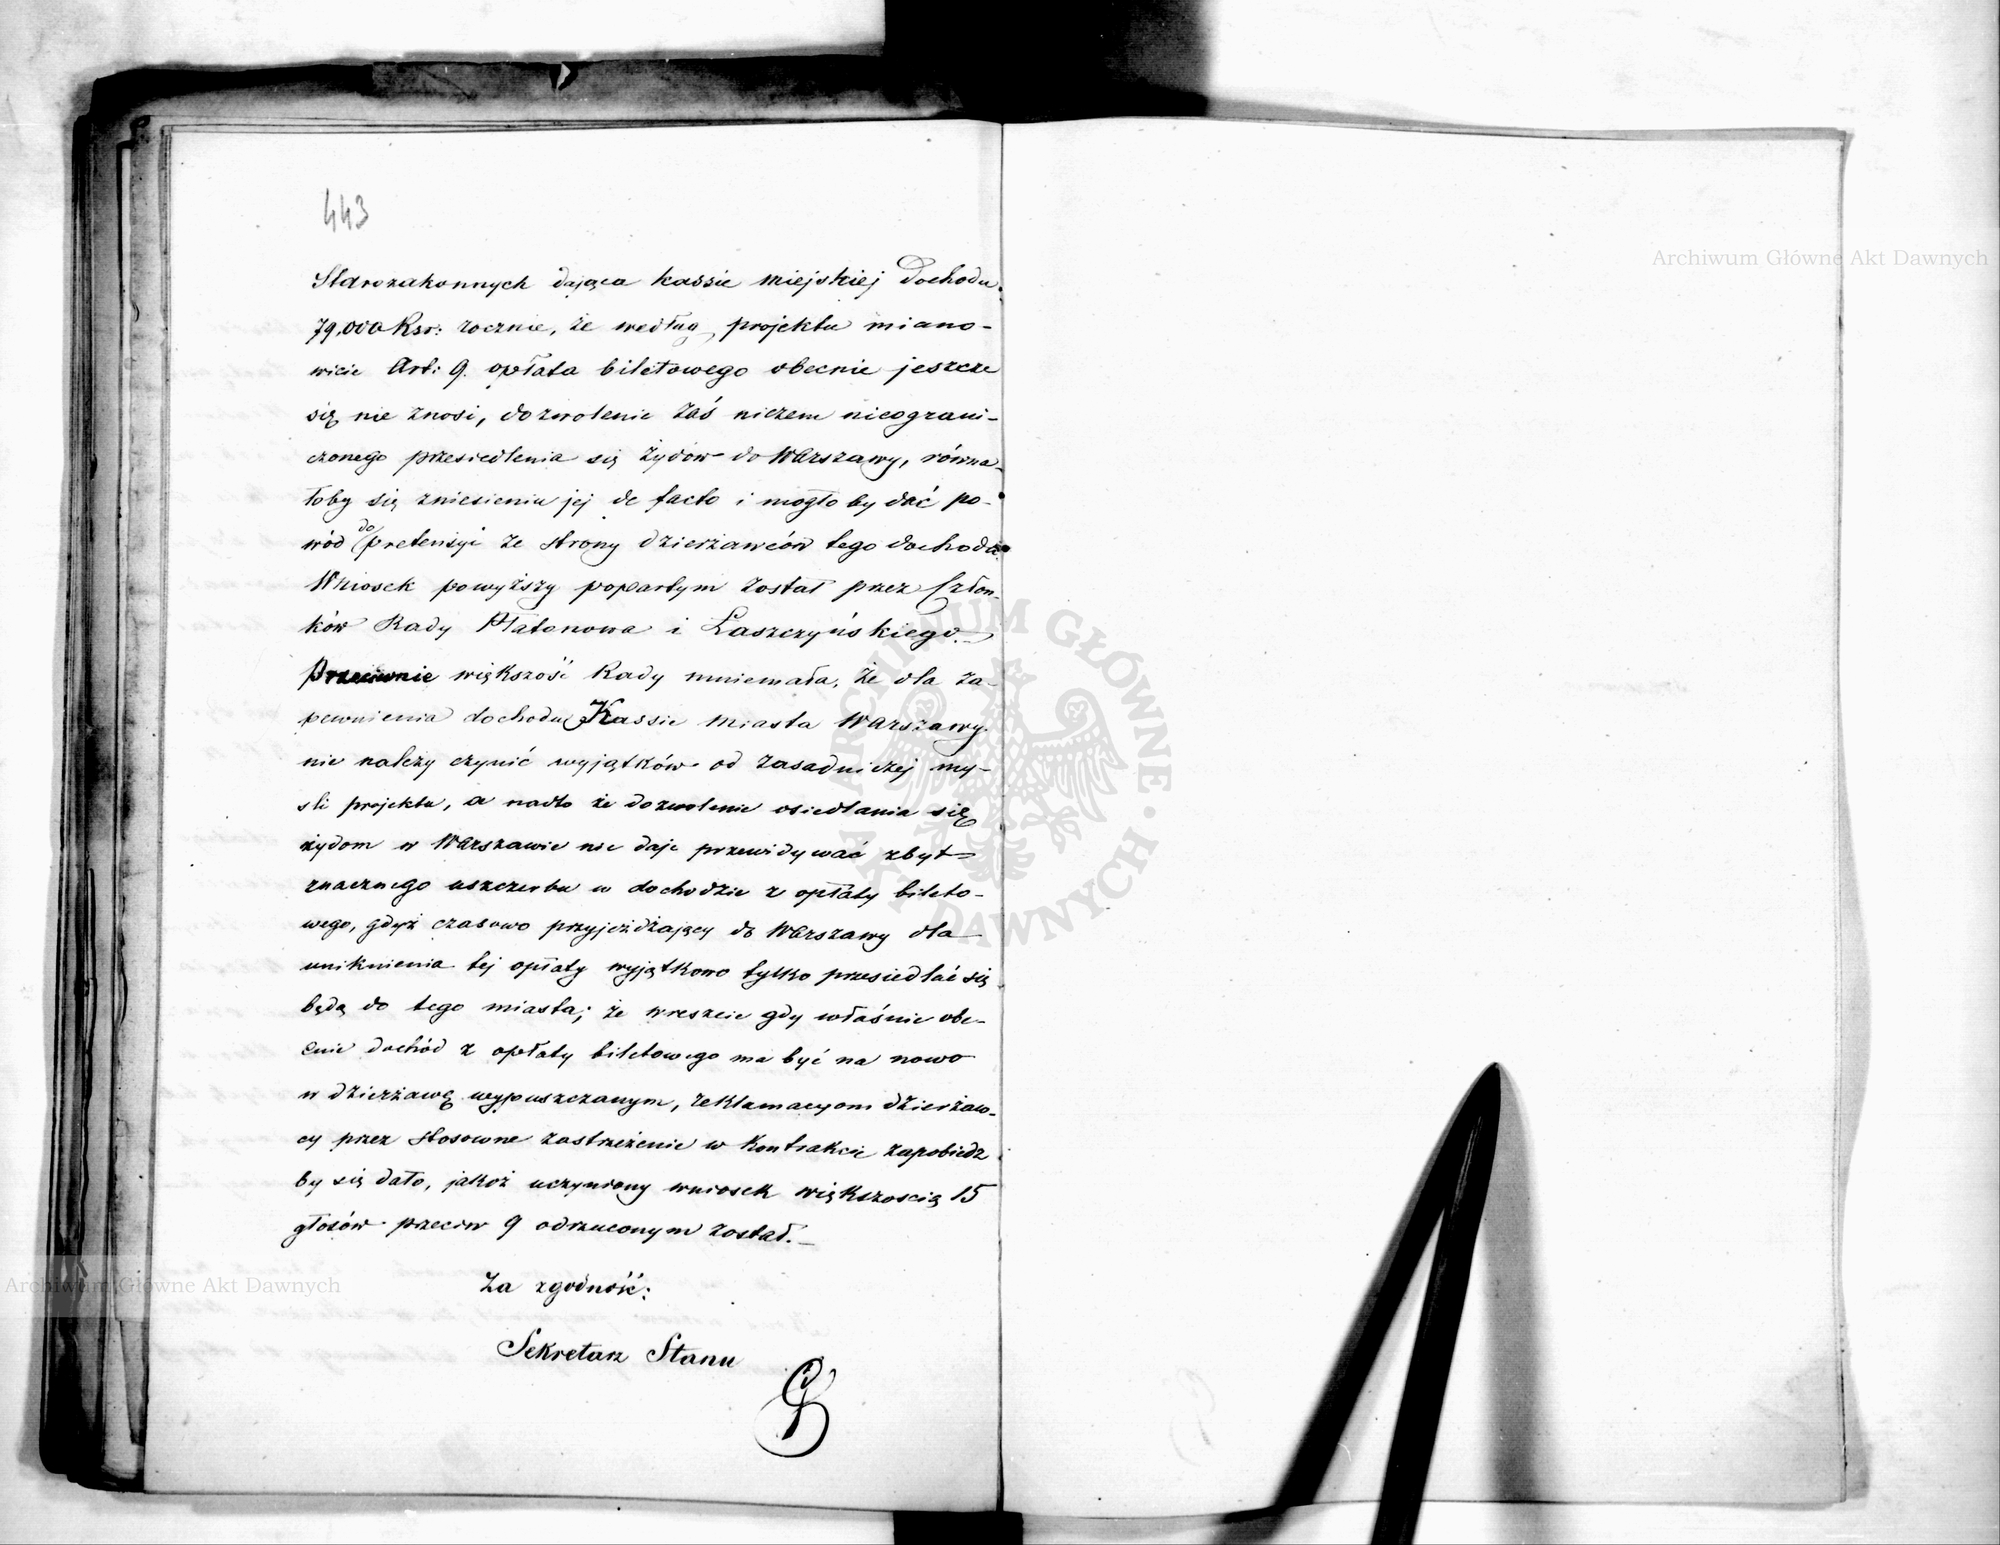 443
Starozakonnych dająca kassie miejskiej dochodu
79,000 Rsr: rocznie, że według projektu miano-
wicie Art: 9. opłata biletowego obecnie jeszcze
się nie znosi, dozwolenie zaś niczem nieograni-
czonego przesiedlenia się żydów do Warszawy, równa-
łoby się zniesieniu jej de facto i mogło by dać po-
wód do pretensyi ze strony dzierżawców tego dochodu.
Wniosek powyższy popartym został przez Człon-
ków Rady Płatonowa i Łaszczyńskiego.—
Przeciwnie większość Rady mniemała, że dla za-
pewnienia dochodu Kassie miasta Warszawy
nie należy czynić wyjątków od zasadniczej my-
sli projektu, a nadto że dozwolenie osiedlania się
żydom w Warszawie nie daje przewidywać zbyt
znacznego uszczerbu w dochodzie z opłaty bileto-
wego, gdyż czasowo przyjeżdżający do Warszawy dla
uniknienia tej opłaty wyjątkowo tylko przesiedlać się
będą do tego miasta; że wreszcie gdy właśnie obe-
cnie dochód z opłaty biletowego ma być na nowo
w dzierżawę wypuszczanym, reklamacyom dzierżaw-
cy przez stosowne zastrzeżenie w Kontrakcie zapobiedz
by się dało, jakoż uczyniony wniosek większością 15
głosów przeciw 9 odrzuconym został.—
Za zgodność:
Sekretarz Stanu
Archiwum Główne Akt Dawnych
Archiwum Główne Akt Dawnych
ARCHIWUM GŁÓWNE · AKT DAWNYCH ·